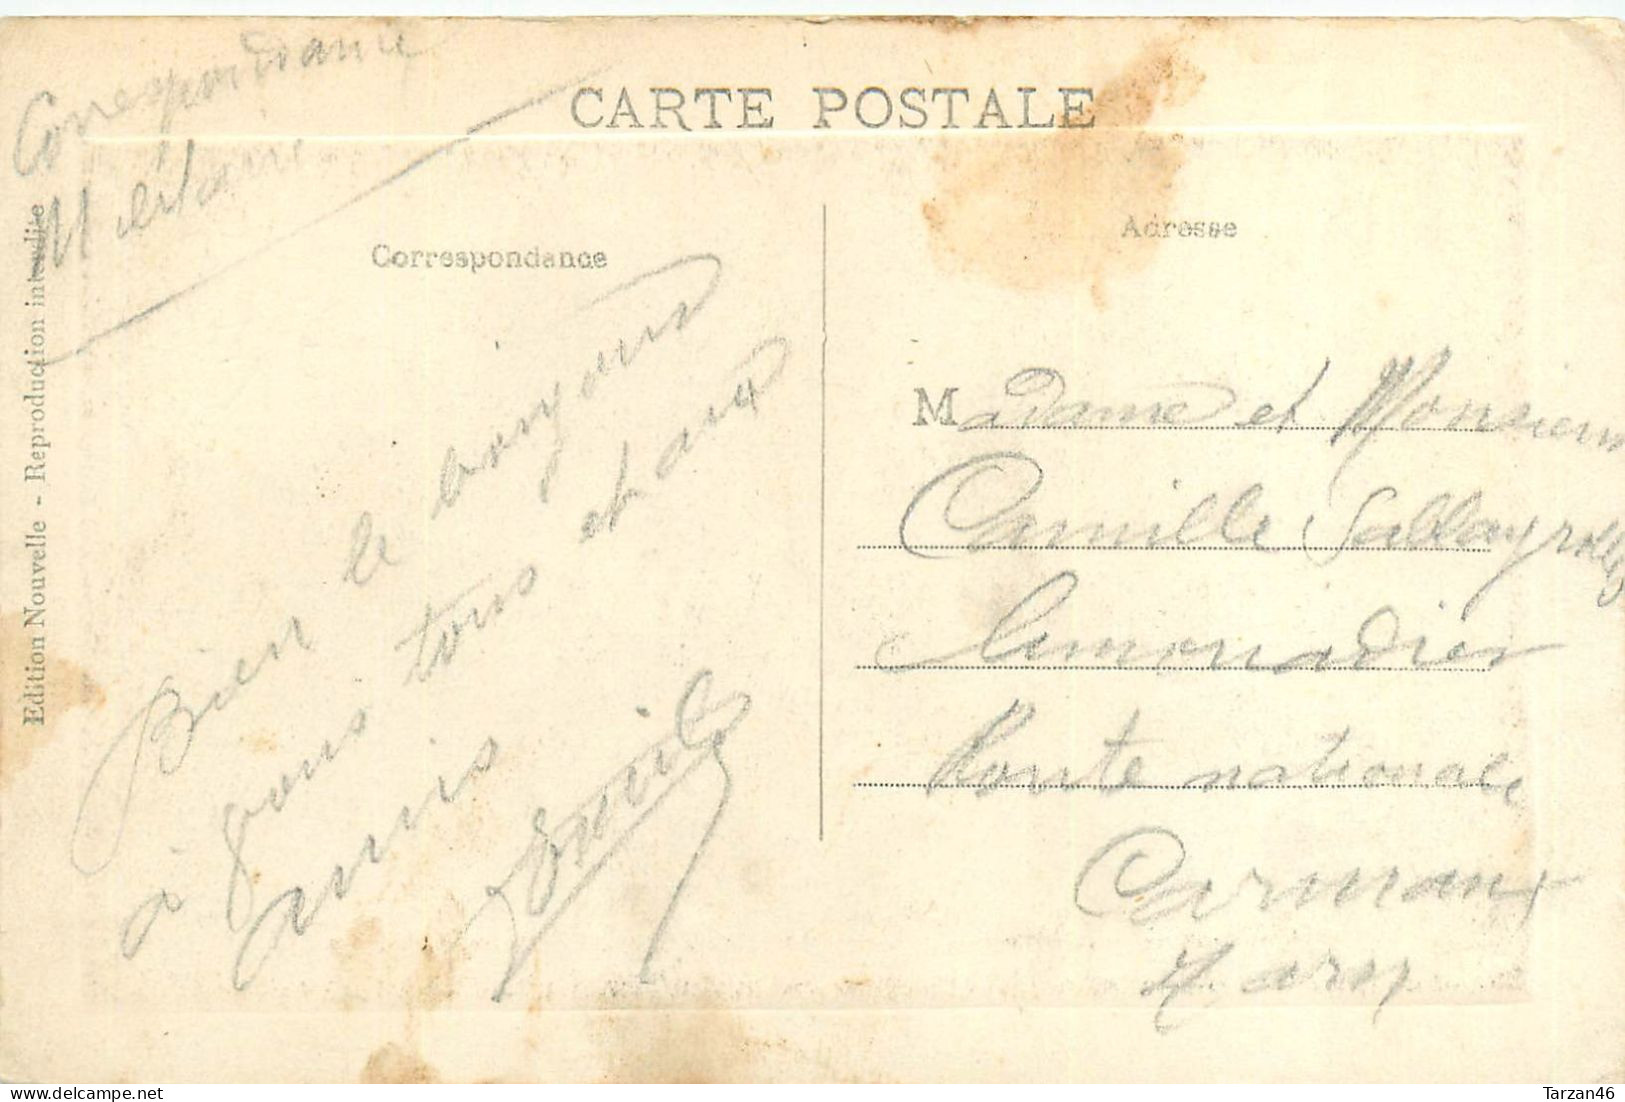 Correspondance
Militaire
CARTE POSTALE
Correspondance
Adresse
Edition Nouvelle - Reproduction interdite
Bien le bonjour
à vous tous et aux
amis
Emile
Madame et Monsieur
Camille Sallayrolles
limonadier
Route nationale
Carmaux
Tarn
Tarzan46